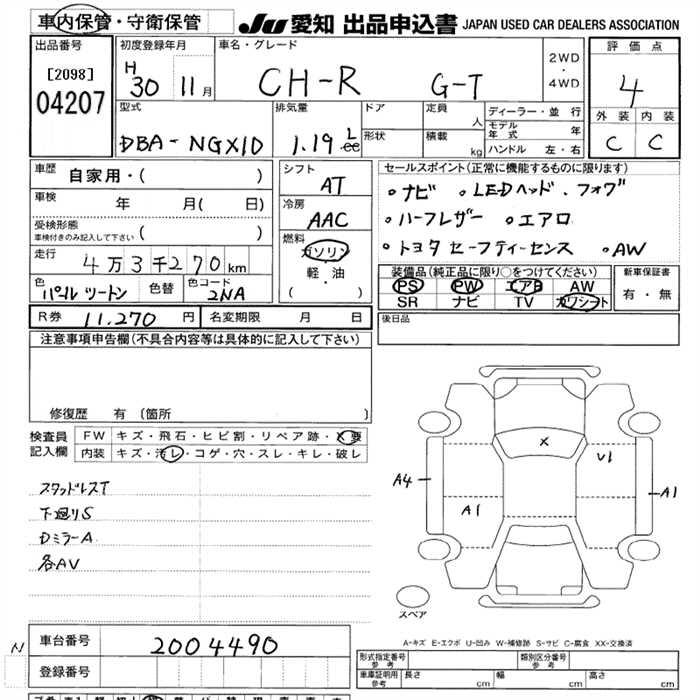 車内保管・守衛保管
JU 愛知 出品申込書 JAPAN USED CAR DEALERS ASSOCIATION
出品番号
[2098]
04207
初度登録年月
H
30 11月
車名・グレード
CH-R G-T
2WD
・
4WD
評価点
4
外装 内装
C C
型式
DBA-NGX10
排気量
1.19 L
ドア
形状
定員
人
積載
kg
ディーラー・並行
モデル年式 年
ハンドル 左・右
車歴 自家用・( )
車検 年 月( 日)
受検形態
車検付きのみ記入して下さい ( )
走行 4万3千270km
色 パールツートン 色替 色コード 2NA
シフト
AT
冷房
AAC
燃料
ガソリン
軽・油
( )
セールスポイント(正常に機能するものに限ります)
・ナビ ・LEDヘッド.フォグ
・ハーフレザー ・エアロ
・トヨタ セーフティーセンス ・AW
装備品(純正品に限り○をつけてください)
PS PW エアB AW
SR ナビ TV カワシート
新車保証書
有・無
R券 11.270 円 名変期限 月 日
後日品
注意事項申告欄(不具合内容等は具体的に記入して下さい)
修復歴 有(箇所 )
検査員
記入欄
FW キズ・飛石・ヒビ割・リペア跡・X要
内装 キズ・汚レ・コゲ・穴・スレ・キレ・破レ
スタッドレスT
下廻りS
DミラーA
各AV
X
U1
A4
A1
A1
スペア
A-キズ E-エクボ U-凹み W-補修跡 S-サビ C-腐食 XX-交換済
N
車台番号 2004490
登録番号
形式指定番号
参考
類別区分番号
参考
車庫証明用
参考
長さ cm 幅 cm 高さ cm